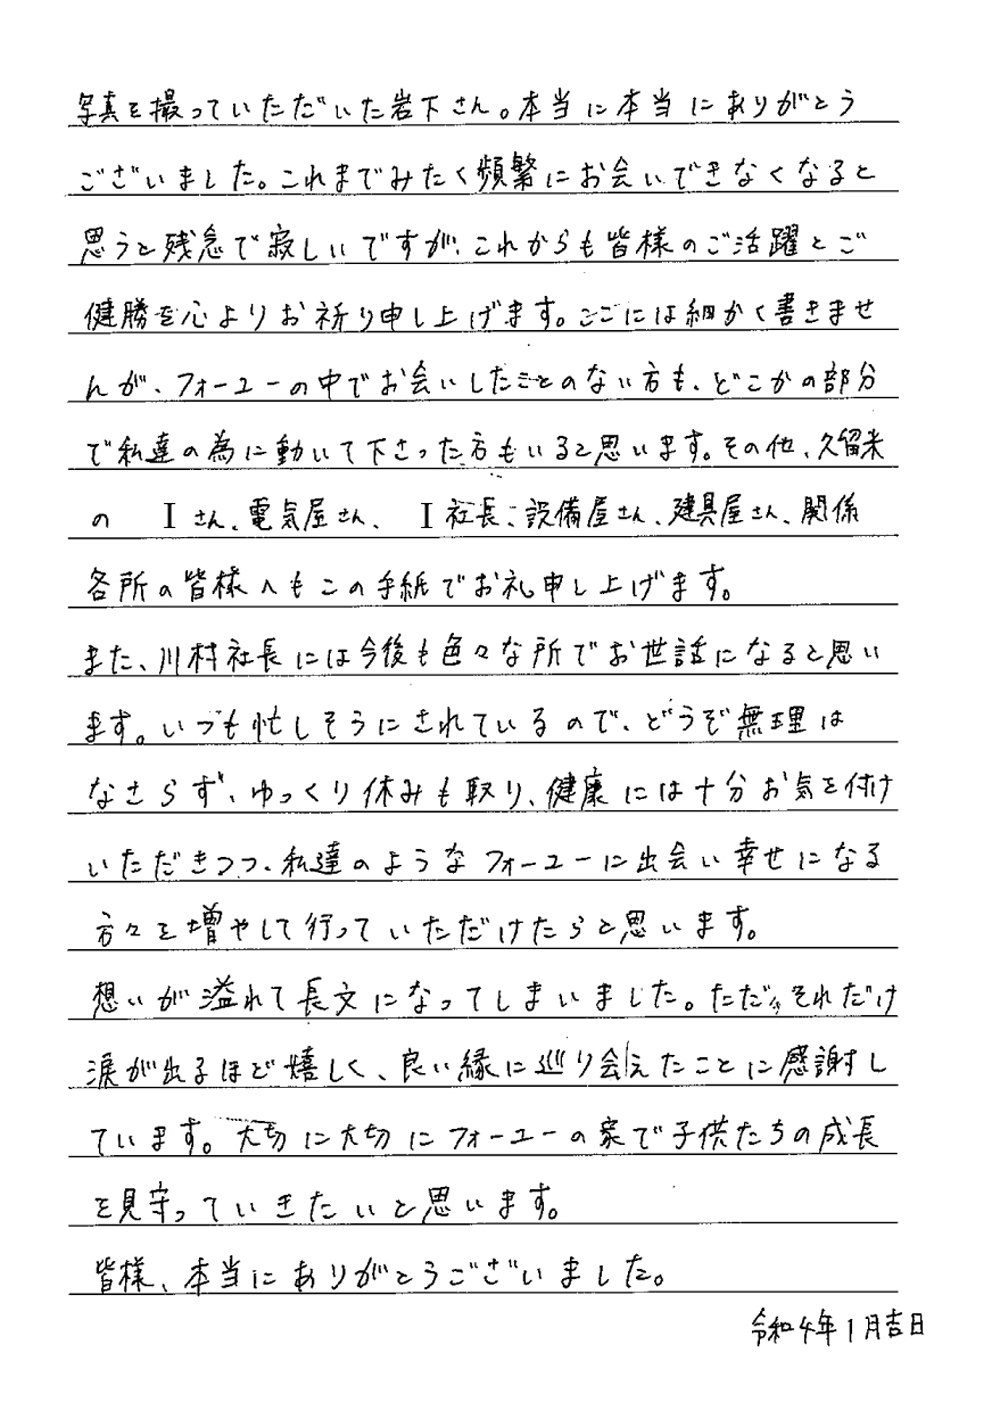 写真を撮っていただいた岩下さん。本当に本当にありがとう
ございました。これまでみたく頻繁にお会いできなくなると
思うと残念で寂しいですが、これからも皆様のご活躍とご
健勝を心よりお祈り申し上げます。ここには細かく書きませ
んが、フォーユーの中でお会いしたことのない方も、どこかの部分
で私達の為に動いて下さった方もいると思います。その他、久留米
の Iさん、電気屋さん、 I社長、設備屋さん、建具屋さん、関係
各所の皆様へもこの手紙でお礼申し上げます。
また、川村社長には今後も色々な所でお世話になると思い
ます。いつも忙しそうにされているので、どうぞ無理は
なさらず、ゆっくり休みも取り、健康には十分お気を付け
いただきつつ、私達のようなフォーユーに出会い幸せになる
方々を増やして行っていただけたらと思います。
想いが溢れて長文になってしまいました。ただ、それだけ
涙が出るほど嬉しく、良い縁に巡り会えたことに感謝し
ています。大切に大切にフォーユーの家で子供たちの成長
を見守っていきたいと思います。
皆様、本当にありがとうございました。
令和4年1月吉日